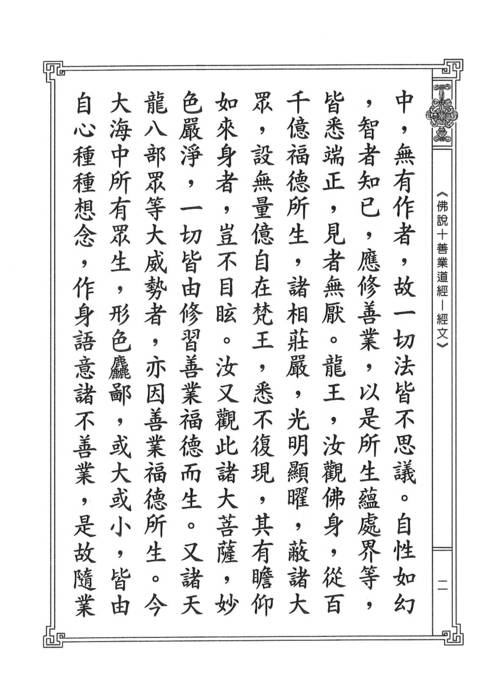 《佛說十善業道經－經文》
二
中，無有作者，故一切法皆不思議。自性如幻
，智者知已，應修善業，以是所生蘊處界等，
皆悉端正，見者無厭。龍王，汝觀佛身，從百
千億福德所生，諸相莊嚴，光明顯曜，蔽諸大
眾，設無量億自在梵王，悉不復現，其有瞻仰
如來身者，豈不目眩。汝又觀此諸大菩薩，妙
色嚴淨，一切皆由修習善業福德而生。又諸天
龍八部眾等大威勢者，亦因善業福德所生。今
大海中所有眾生，形色麤鄙，或大或小，皆由
自心種種想念，作身語意諸不善業，是故隨業